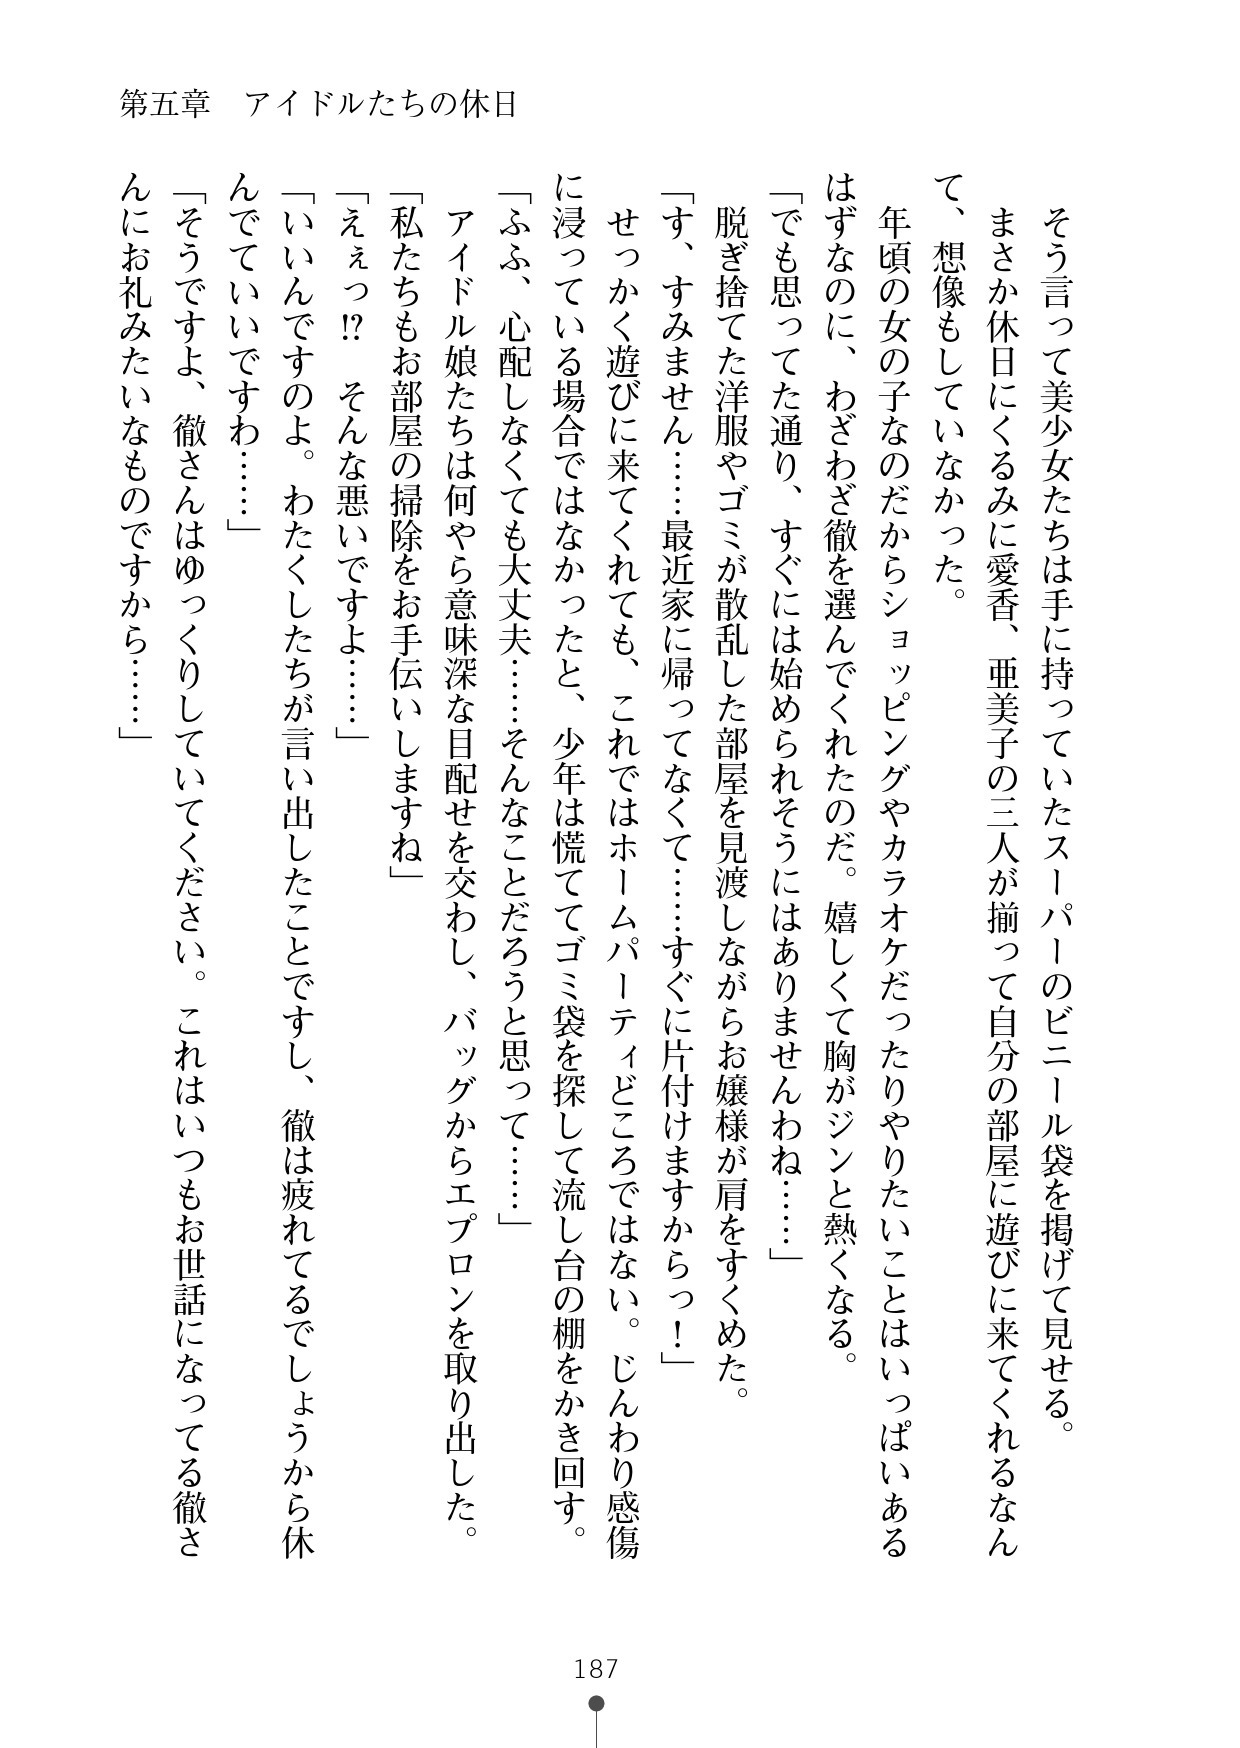 第五章　アイドルたちの休日
　そう言って美少女たちは手に持っていたスーパーのビニール袋を掲げて見せる。
　まさか休日にくるみに愛香、亜美子の三人が揃って自分の部屋に遊びに来てくれるなん
て、想像もしていなかった。
　年頃の女の子なのだからショッピングやカラオケだったりやりたいことはいっぱいある
はずなのに、わざわざ徹を選んでくれたのだ。嬉しくて胸がジンと熱くなる。
「でも思ってた通り、すぐには始められそうにはありませんわね……」
　脱ぎ捨てた洋服やゴミが散乱した部屋を見渡しながらお嬢様が肩をすくめた。
「す、すみません……最近家に帰ってなくて……すぐに片付けますからっ！」
　せっかく遊びに来てくれても、これではホームパーティどころではない。じんわり感傷
に浸っている場合ではなかったと、少年は慌ててゴミ袋を探して流し台の棚をかき回す。
「ふふ、心配しなくても大丈夫……そんなことだろうと思って……」
　アイドル娘たちは何やら意味深な目配せを交わし、バッグからエプロンを取り出した。
「私たちもお部屋の掃除をお手伝いしますね」
「えぇっ!?　そんな悪いですよ……」
「いいんですのよ。わたくしたちが言い出したことですし、徹は疲れてるでしょうから休
んでていいですわ……」
「そうですよ、徹さんはゆっくりしていてください。これはいつもお世話になってる徹さ
んにお礼みたいなものですから……」
187